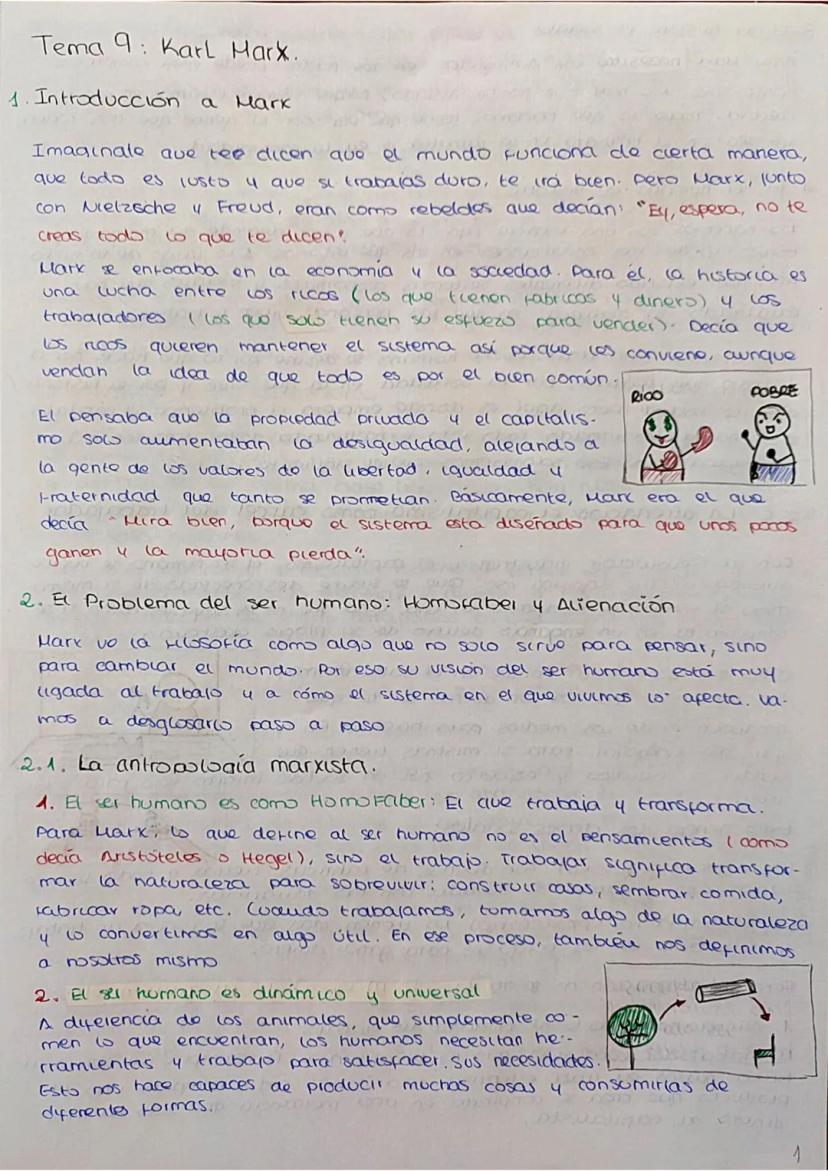 Tema 9: Karl Marx.
1. Introducción a Marx
Imagínate que tee dicen que el mundo funciona de cierta manera,
que todo es justo y que si trabajas duro, te irá bien. Pero Marx, junto
con Nietzsche y Freud, eran como rebeldes que decían: "Ey, espera, no te
creas todo lo que te dicen".
Marx se enfocaba en la economía y la sociedad. Para él, la historia es
una lucha entre los ricos (los que tienen fabricas y dinero) y los
trabajadores (los que solo tienen su esfuerzo para vender). Decía que
los ricos quieren mantener el sistema así porque les conviene, aunque
vendan la idea de que todo es por el bien común.
RICO
POBRE
El pensaba que la propiedad privada y el capitalis-
mo solo aumentaban la desigualdad, alejando a
la gente de los valores de la libertad, igualdad y
fraternidad que tanto se prometían. Básicamente, Marx era el que
decía "Mira bien, porque el sistema esta diseñado para que unos pocos
ganen y la mayoría pierda".
2. El Problema del ser humano: Homofaber y Alienación
Marx ve la filosofía como algo que no solo sirve para pensar, sino
para cambiar el mundo. Por eso su visión del ser humano está muy
ligada al trabajo y a cómo el sistema en el que vivimos lo afecta. Va-
mos a desglosarlo paso a paso
2.1. La antropología marxista.
1. El ser humano es como HomoFaber: El que trabaja y transforma.
Para Marx, lo que define al ser humano no es el pensamientos (como
decía Aristóteles o Hegel), sino el trabajo. Trabajar significa transfor-
mar la naturaleza para sobrevivir: construir casas, sembrar comida,
fabricar ropa, etc. Cuando trabajamos, tomamos algo de la naturaleza
y lo convertimos en algo útil. En ese proceso, también nos definimos
a nosotros mismo
2. El ser humano es dinámico y universal
A diferencia de los animales, que simplemente co-
men lo que encuentran, los humanos necesitan he-
rramientas y trabajo para satisfacer sus necesidades.
Esto nos hace capaces de producir muchas cosas y consumirlas de
diferentes formas.
1